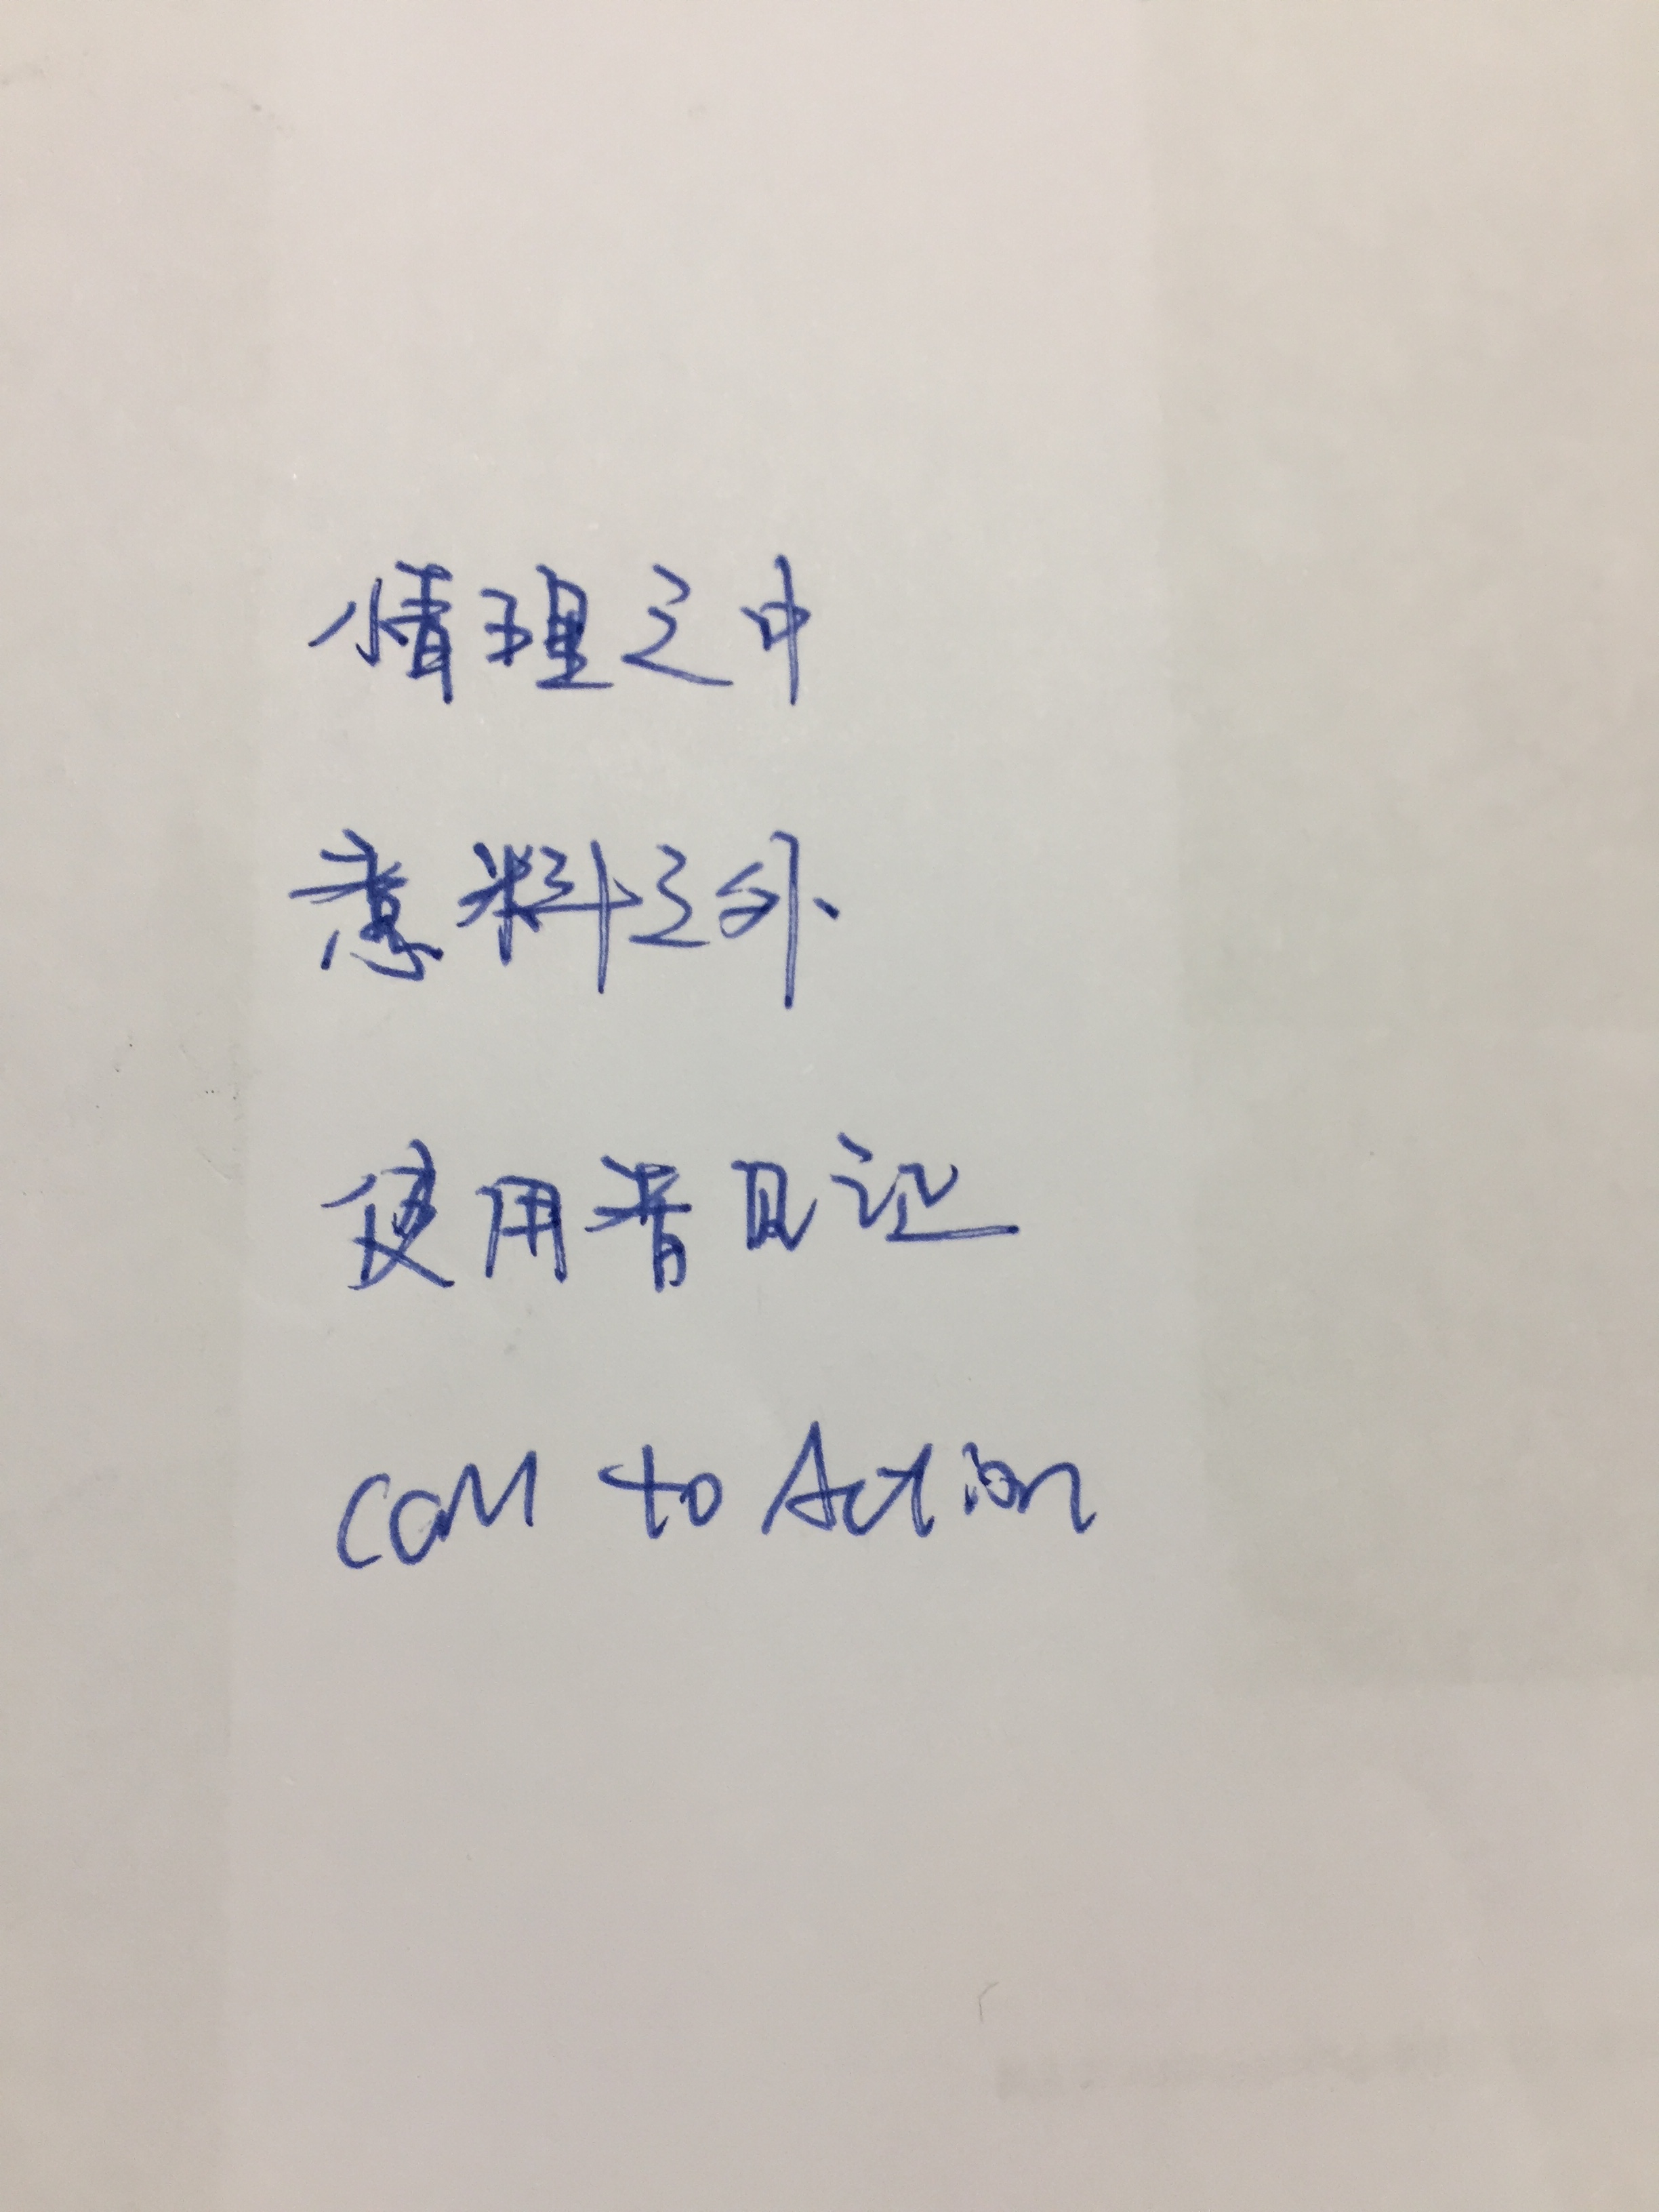 情理之中
意料之外
使用者见证
Call to Action